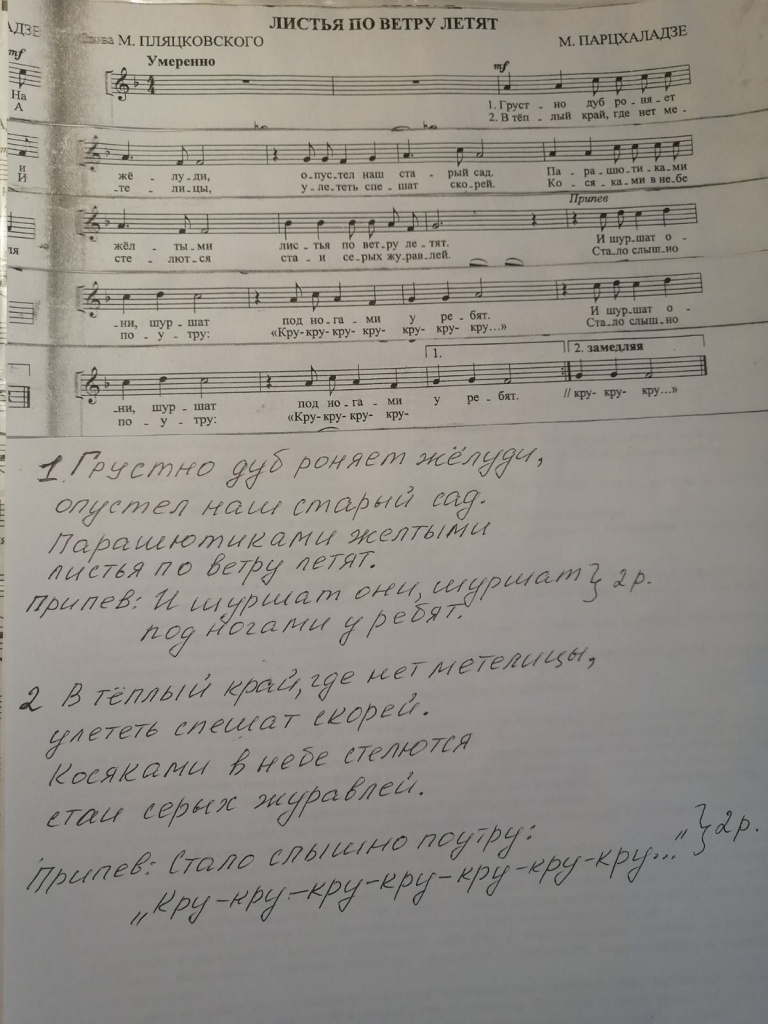 ЛИСТЬЯ ПО ВЕТРУ ЛЕТЯТ
М. ПЛЯЦКОВСКОГО
М. ПАРЦХАЛАДЗЕ
АДЗЕ
Умеренно
mf
mf
На
А
1. Груст - но дуб ро - ня - ет
2. В тёп - лый край, где нет ме -
и
И
жё - лу - ди, о - пус - тел наш ста - рый сад. Па - ра - шю - ти - ка - ми
- те - ли - цы, у - ле - теть спе - шат ско - рей. Ко - ся - ка - ми в не - бе
Припев
ля
жёл - ты - ми лис - тья по вет - ру ле - тят. И шур - шат о -
сте - лют - ся ста - и се - рых жу - рав - лей. Ста - ло слыш - но
- ни, шур - шат под но - га - ми у ре - бят. И шур - шат о -
по - у - тру: «Кру- кру- кру- кру- кру- кру- кру...» Ста - ло слыш - но
1. 2. замедляя
- ни, шур - шат под но - га - ми у ре - бят. // кру- кру- кру...»
по - у - тру: «Кру- кру- кру- кру-
1 Грустно дуб роняет жёлуди,
опустел наш старый сад.
Парашютиками желтыми
листья по ветру летят.
Припев: И шуршат они, шуршат } 2 р.
под ногами у ребят.
2 В тёплый край, где нет метелицы,
улететь спешат скорей.
Косяками в небе стелются
стаи серых журавлей.
Припев: Стало слышно поутру: } 2 р.
„Кру-кру-кру-кру-кру-кру-кру..."